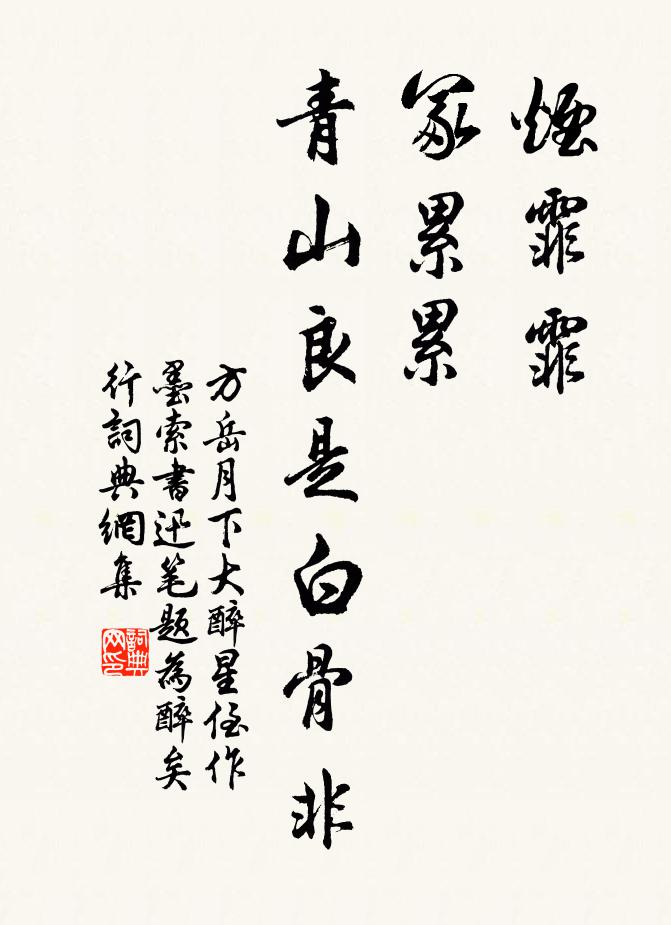 煙霏霏
冢累累
青山良是白骨非
方岳月下大醉星侄作
墨索書迅笔題為醉矣
行詞典網集
詞典网印